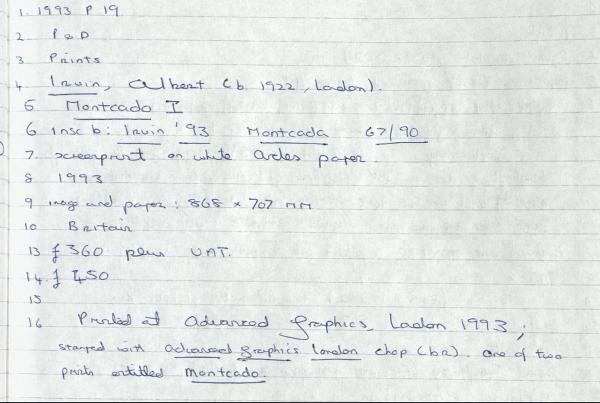 1. 1993 P 19
2. P & D
3 Prints
4. Irvin, Albert (b. 1922, London).
5 Montcado I
6 insc b: Irvin '93 Montcada 67/90
7. screenprint on white Arches paper
8 1993
9 image and paper: 868 x 707 mm
10 Britain
13 £360 plus VAT.
14. £ 450
15
16 Printed at Advanced Graphics, London 1993;
stamped with Advanced graphics London chop (br). One of two
prints entitled Montcado.